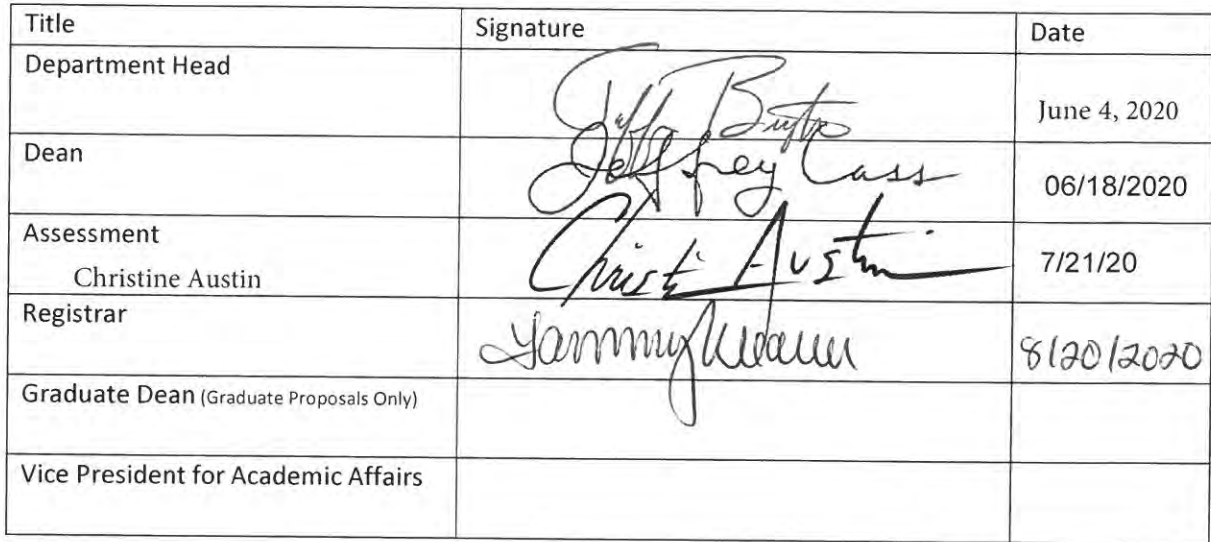 Title Signature Date
Department Head June 4, 2020
Dean Jeffrey Cass 06/18/2020
Assessment
Christine Austin Christi Austin 7/21/20
Registrar Tammy 8/20/2020
Graduate Dean (Graduate Proposals Only)
Vice President for Academic Affairs